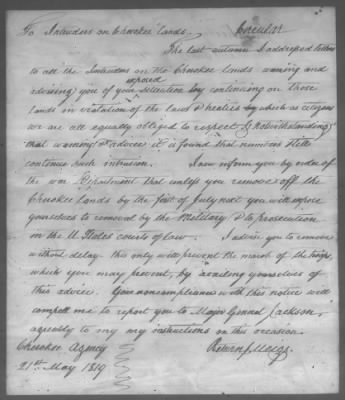 To Intruders on Cherokee lands. Circular
The last autumn I addressed letters
to all the Intruders on the Cherokee lands warning and
exposed
advising you of your situation by continuing on those
lands in violation of the laws & treaties by which as citizens
we are all equally obliged to respect & Notwithstanding
that warning & advice it is found that numbers still
continue such intrusion. I now inform you by order of
the war Department that unless you remove off the
Cherokee lands by the first of July next you will expose
yourselves to removal by the Military & to prosecution
in the U. States courts of law. I advise you to remove
without delay this only will prevent the march of the troops
which you may prevent, by availing yourselves of
this advice. Your noncompliance with this notice will
compell me to report you to Major General Jackson,
agreeably to my my instructions in this occasion.
Cherokee Agency Return J. Meigs
21st May 1819